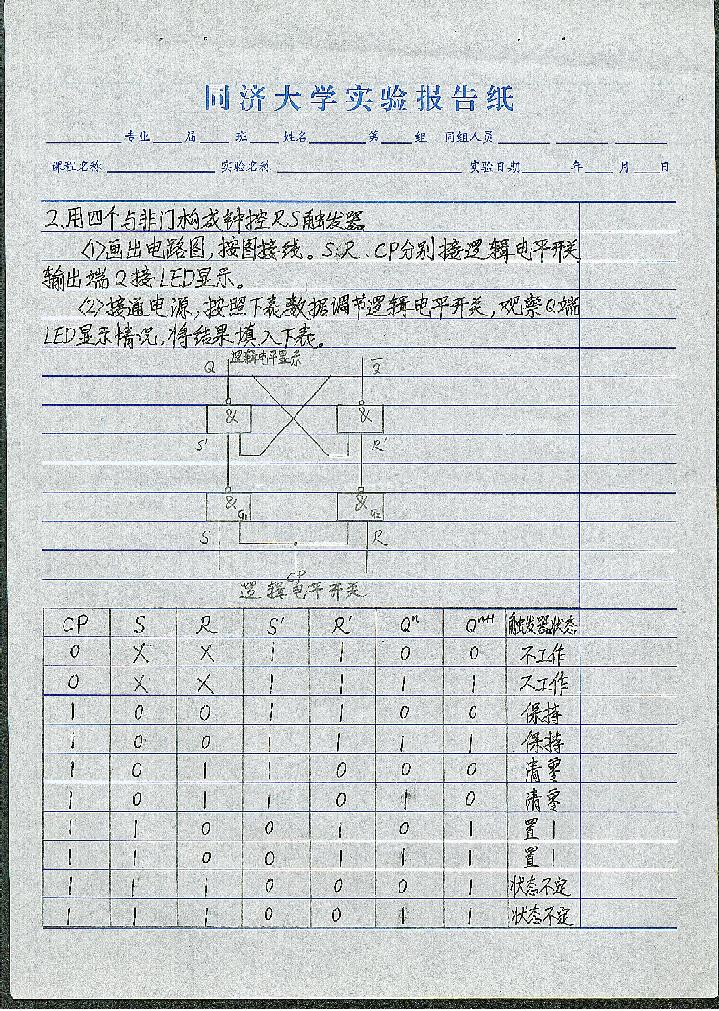 同济大学实验报告纸
专业 届 班 姓名 第 组 同组人员
课程名称 实验名称 实验日期 年 月 日
2.用四个与非门构成钟控RS触发器
(1)画出电路图,按图接线。S、R、CP分别接逻辑电平开关
输出端Q接LED显示。
(2)接通电源,按照下表数据调节逻辑电平开关,观察Q端
LED显示情况,将结果填入下表。
Q 逻辑电平显示 Q̅
& &
S' R'
& G1 & G2
S R
CP
逻辑电平开关
CP S R S' R' Qⁿ Qⁿ⁺¹ 触发器状态
0 X X 1 1 0 0 不工作
0 X X 1 1 1 1 不工作
1 0 0 1 1 0 0 保持
1 0 0 1 1 1 1 保持
1 0 1 1 0 0 0 清零
1 0 1 1 0 1 0 清零
1 1 0 0 1 0 1 置1
1 1 0 0 1 1 1 置1
1 1 1 0 0 0 1 状态不定
1 1 1 0 0 1 1 状态不定